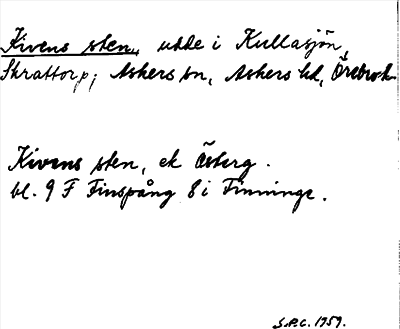 Kivens sten, ute i Kullasjön,
Skrattorp, Askers sn, Askers hd, Örebro l.
Kivens sten, ek Östberg.
bl. 9 F Finspång 8 i Finninge.
S.P.C. 1959.